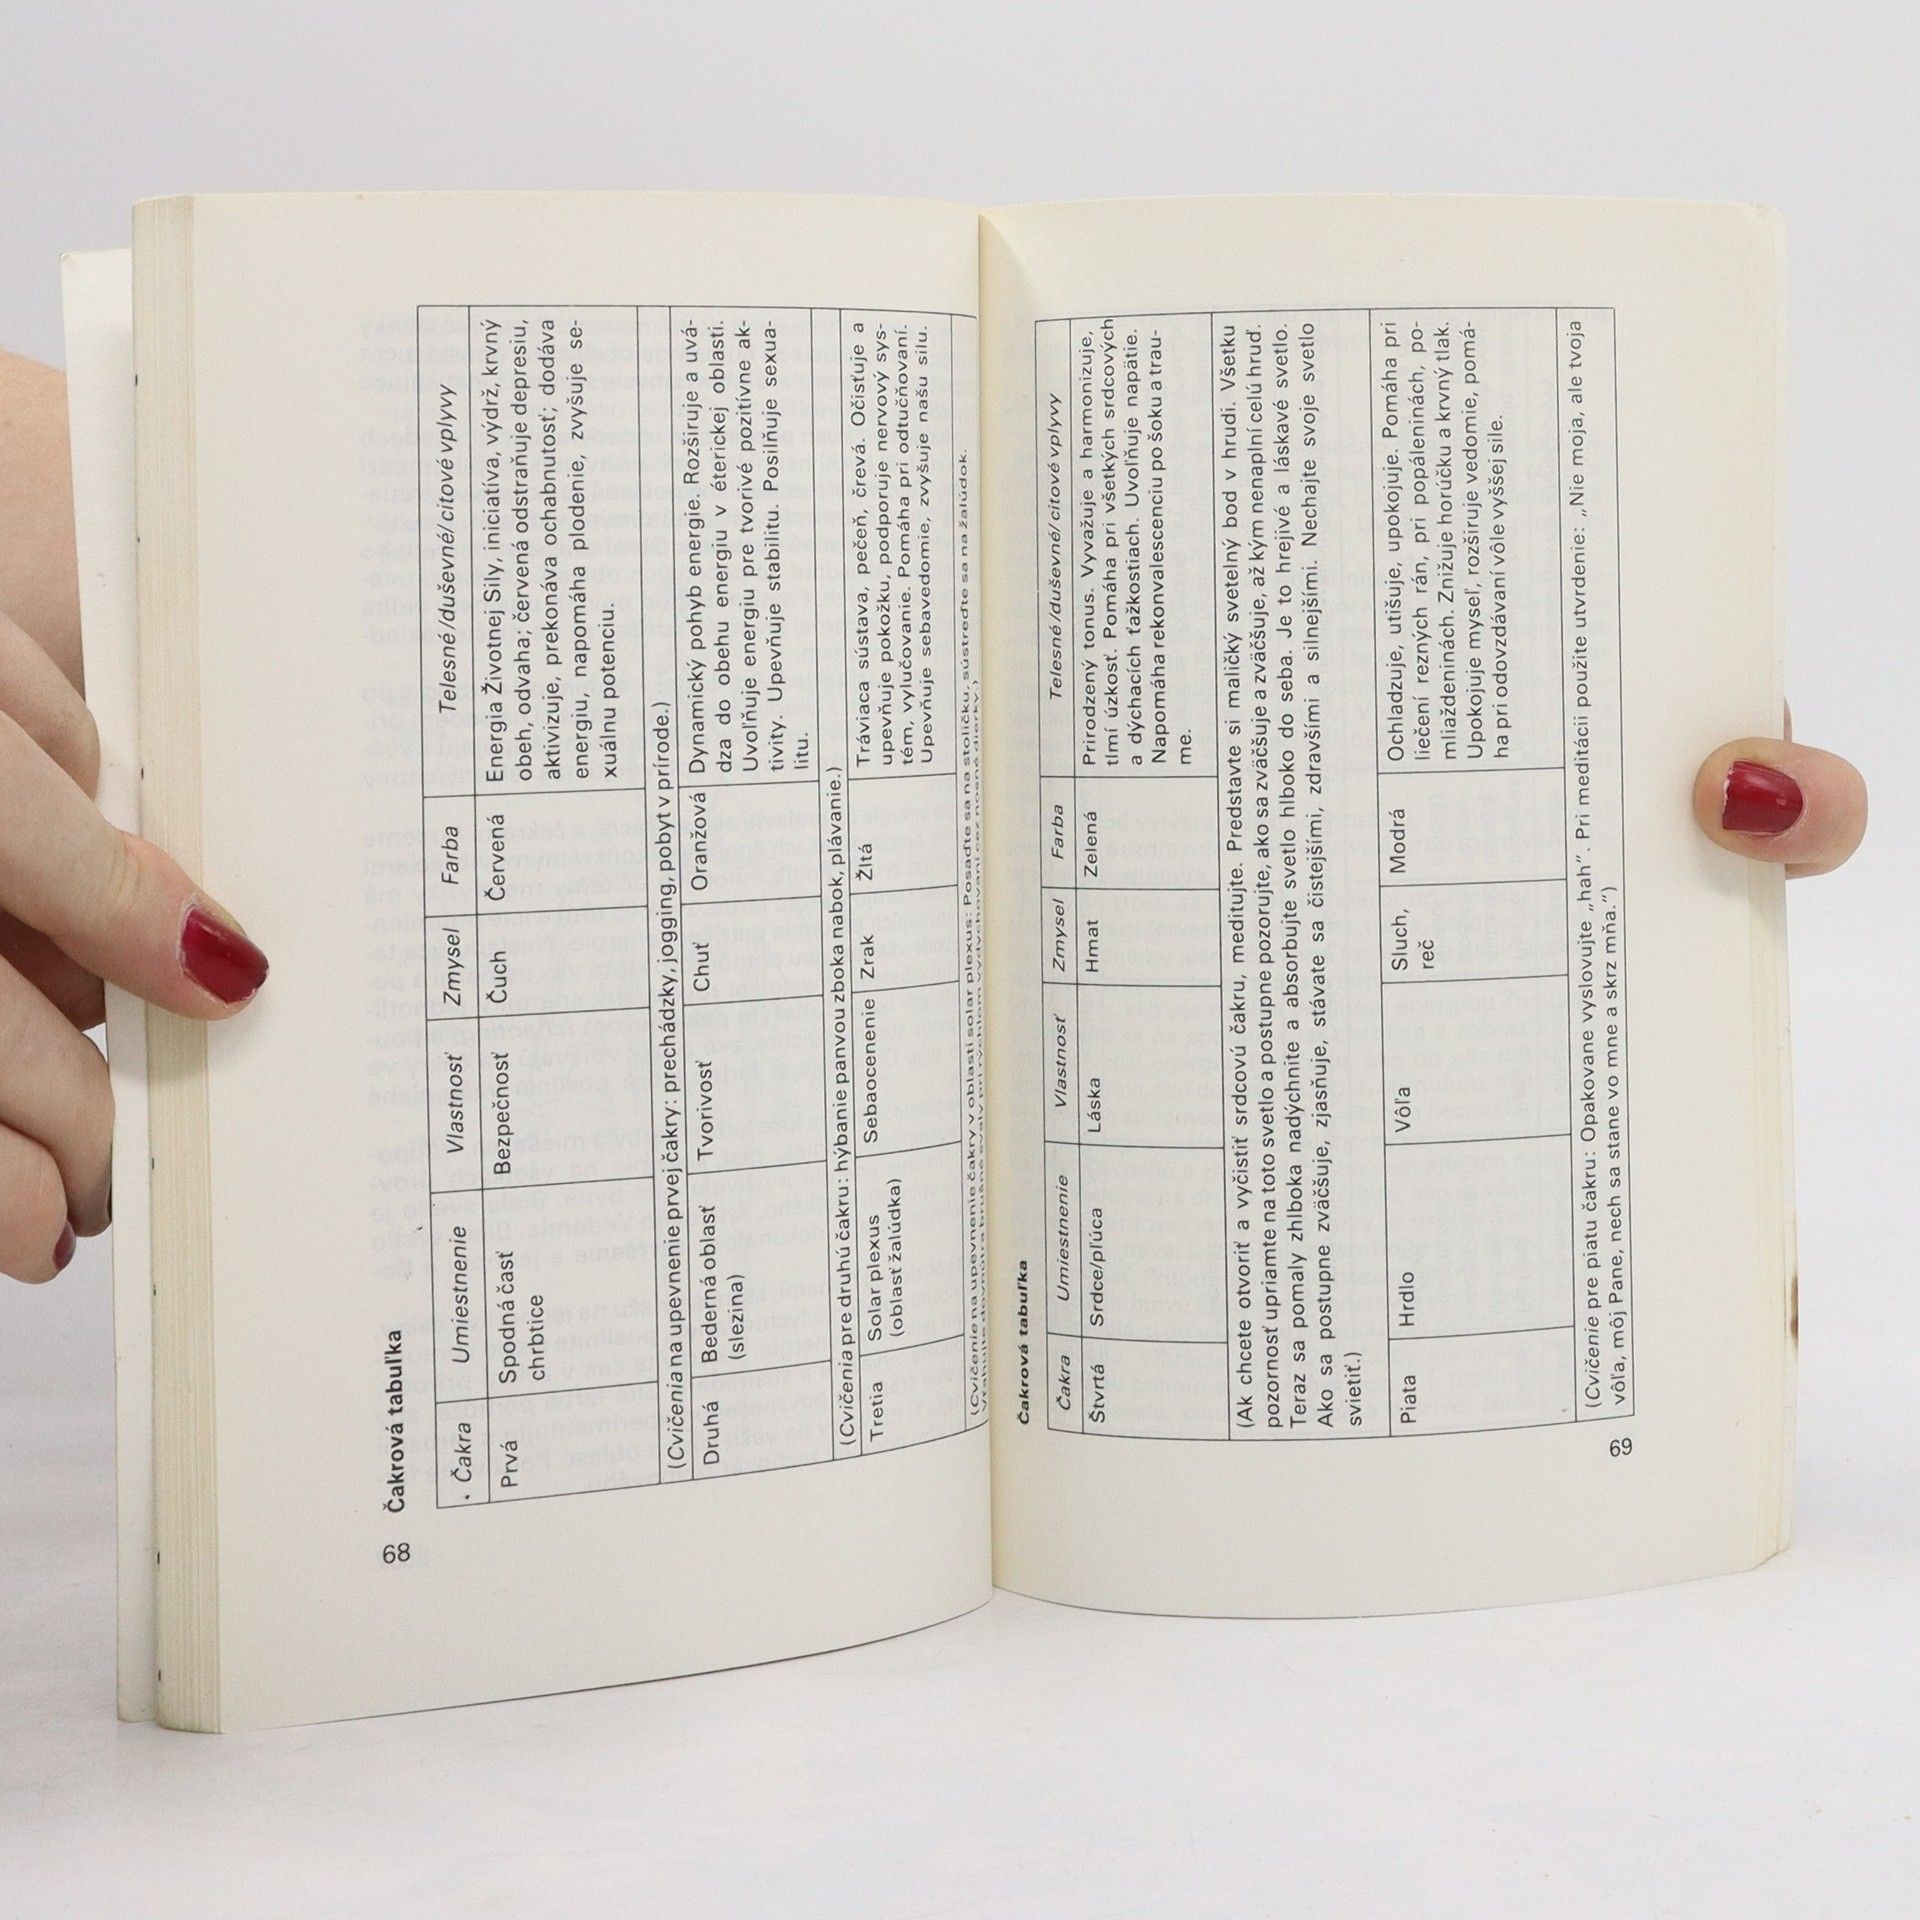 68
Čakrová tabuľka
Čakra Umiestnenie Vlastnosť Zmysel Farba Telesné/duševné/citové vplyvy
Prvá Spodná časť Bezpečnosť Čuch Červená Energia Životnej Sily, iniciatíva, výdrž, krvný
chrbtice obeh, odvaha; červená odstraňuje depresiu,
aktivizuje, prekonáva ochabnutosť; dodáva
energiu, napomáha plodenie, zvyšuje se-
xuálnu potenciu.
(Cvičenia na upevnenie prvej čakry: prechádzky, jogging, pobyt v prírode.)
Druhá Bederná oblasť Tvorivosť Chuť Oranžová Dynamický pohyb energie. Rozširuje a uvá-
(slezina) dza do obehu energiu v éterickej oblasti.
Uvoľňuje energiu pre tvorivé pozitívne ak-
tivity. Upevňuje stabilitu. Posilňuje sexua-
litu.
(Cvičenia pre druhú čakru: hýbanie panvou zboka nabok, plávanie.)
Tretia Solar plexus Sebaocenenie Zrak Žltá Tráviaca sústava, pečeň, črevá. Očisťuje a
(oblasť žalúdka) upevňuje pokožku, podporuje nervový sys-
tém, vylučovanie. Pomáha pri odtučňovaní.
Upevňuje sebavedomie, zvyšuje našu silu.
(Cvičenie na upevnenie čakry v oblasti solar plexus: Posaďte sa na stoličku, sústreďte sa na žalúdok.
Vťahujte dovnútra brušné svaly pri rýchlom vydychovaní cez nosné dierky.)
Čakrová tabuľka
Čakra Umiestnenie Vlastnosť Zmysel Farba Telesné/duševné/citové vplyvy
Štvrtá Srdce/pľúca Láska Hmat Zelená Prirodzený tonus. Vyvažuje a harmonizuje,
tlmí úzkosť. Pomáha pri všetkých srdcových
a dýchacích ťažkostiach. Uvoľňuje napätie.
Napomáha rekonvalescenciu po šoku a trau-
me.
(Ak chcete otvoriť a vyčistiť srdcovú čakru, meditujte. Predstavte si maličký svetelný bod v hrudi. Všetku
pozornosť upriamte na toto svetlo a postupne pozorujte, ako sa zväčšuje a zväčšuje, až kým nenaplní celú hruď.
Teraz sa pomaly zhlboka nadýchnite a absorbujte svetlo hlboko do seba. Je to hrejivé a láskavé svetlo.
Ako sa postupne zväčšuje, zjasňuje, stávate sa čistejšími, zdravšími a silnejšími. Nechajte svoje svetlo
svietiť.)
Piata Hrdlo Vôľa Sluch, Modrá Ochladzuje, utišuje, upokojuje. Pomáha pri
reč liečení rezných rán, pri popáleninách, po-
mliaždeninách. Znižuje horúčku a krvný tlak.
Upokojuje myseľ, rozširuje vedomie, pomá-
ha pri odovzdávaní vôle vyššej sile.
(Cvičenie pre piatu čakru: Opakovane vyslovujte „hah“. Pri meditácii použite utvrdenie: „Nie moja, ale tvoja
vôľa, môj Pane, nech sa stane vo mne a skrz mňa.“)
69